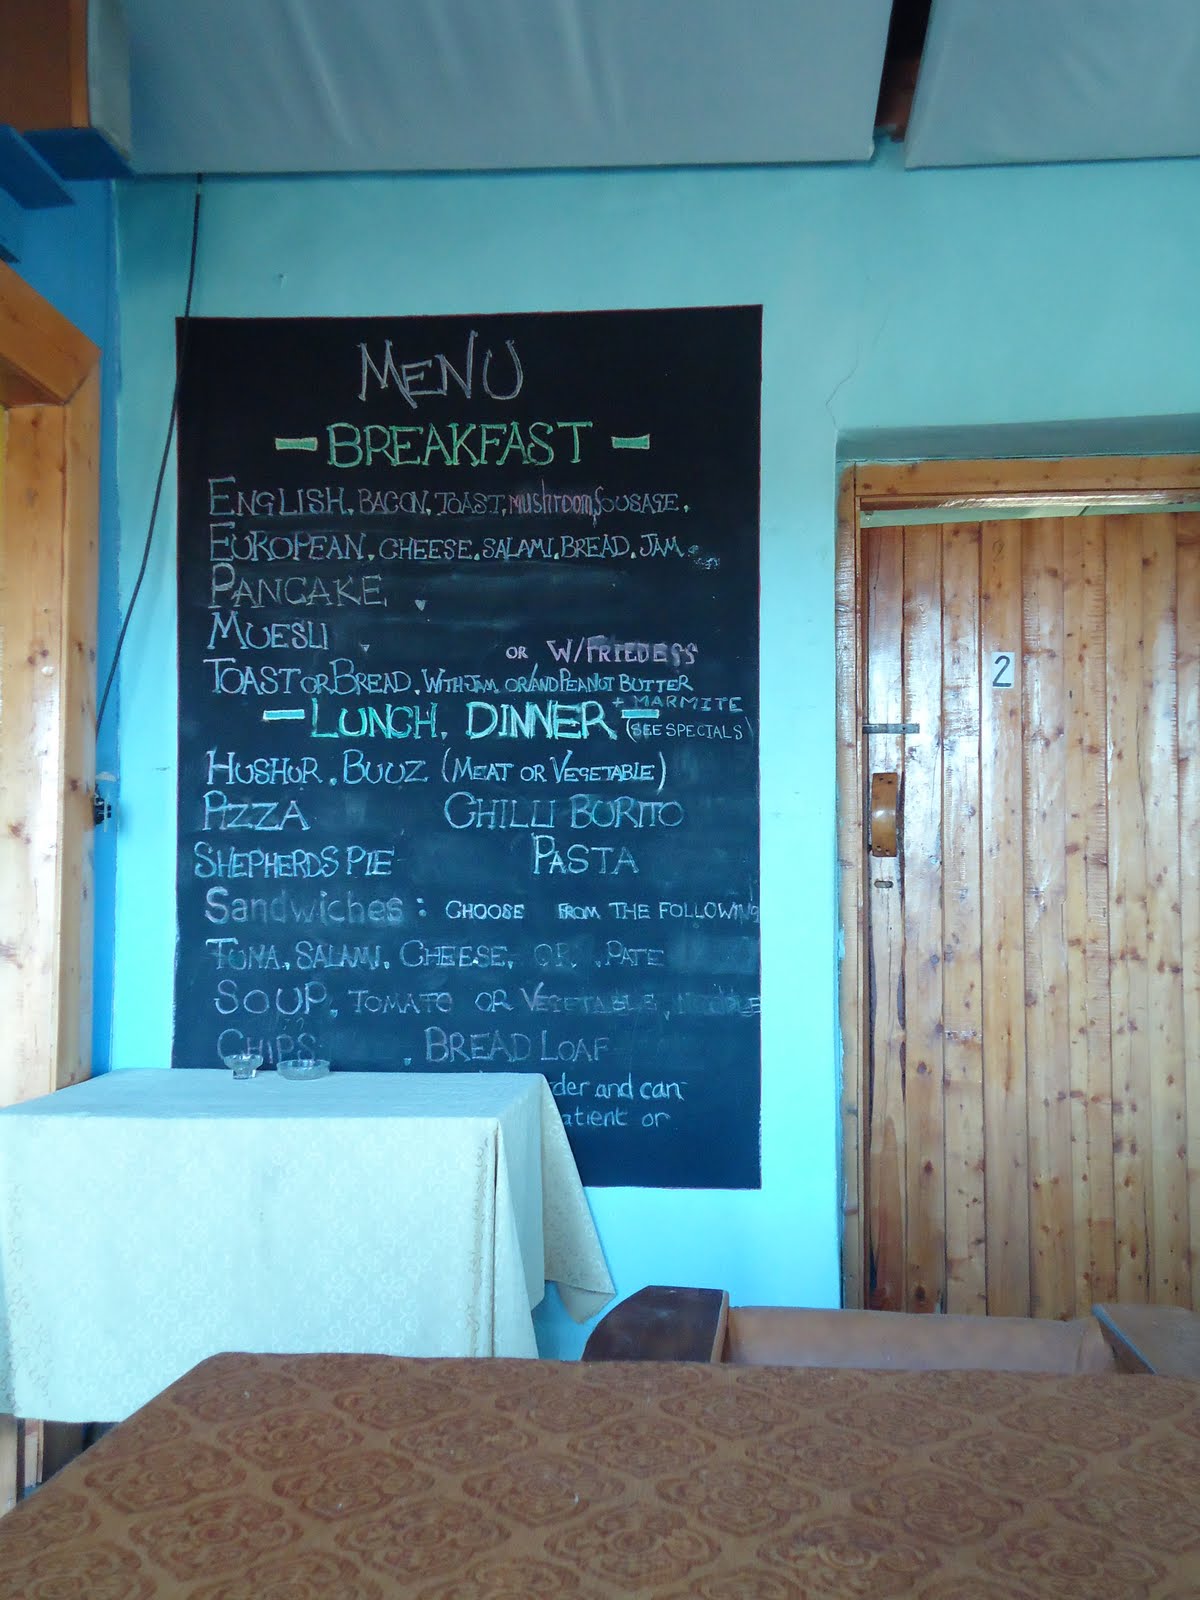 MENU
BREAKFAST
ENGLISH, BACON, TOAST, MUshroom, SOUSAGE.
EUROPEAN, CHEESE, SALAMI, BREAD, JAM
PANCAKE
MUESLI
OR W/FRIED
TOAST OR BREAD, WITH JAM OR/AND PEANUT BUTTER
+ MARMITE
LUNCH, DINNER (SEE SPECIALS)
HUSHUR, BUUZ (MEAT OR VEGETABLE)
PIZZA CHILLI BORITO
SHEPHERDS PIE PASTA
Sandwiches: CHOOSE FROM THE FOLLOWING
TUNA, SALAMI, CHEESE, OR PATE
SOUP, TOMATO OR VEGETABLE, NOODLE
CHIPS BREAD LOAF
der and can
atient or
2